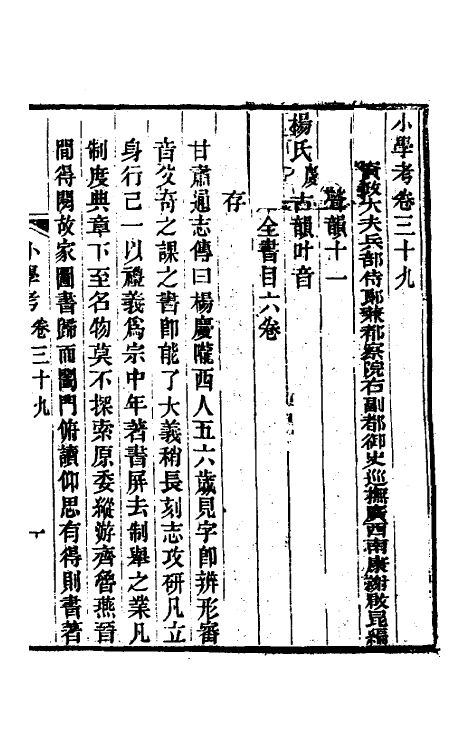 小學考卷三十九
資政大夫兵部侍郎兼都察院右副都御史巡撫廣西南康謝啟昆編
聲韻十一
楊氏慶古韻叶音
全書目六卷
存
甘肅通志傳曰楊慶隴西人五六歲見字卽辨形審
音父奇之課之書卽能了大義稍長刻志攻研凡立
身行己一以禮義爲宗中年著書屏去制舉之業凡
制度典章下至名物莫不探索原委縱游齊魯燕晉
間得閱故家圖書歸而闔門俯讀仰思有得則書著
小學考 卷三十九 一